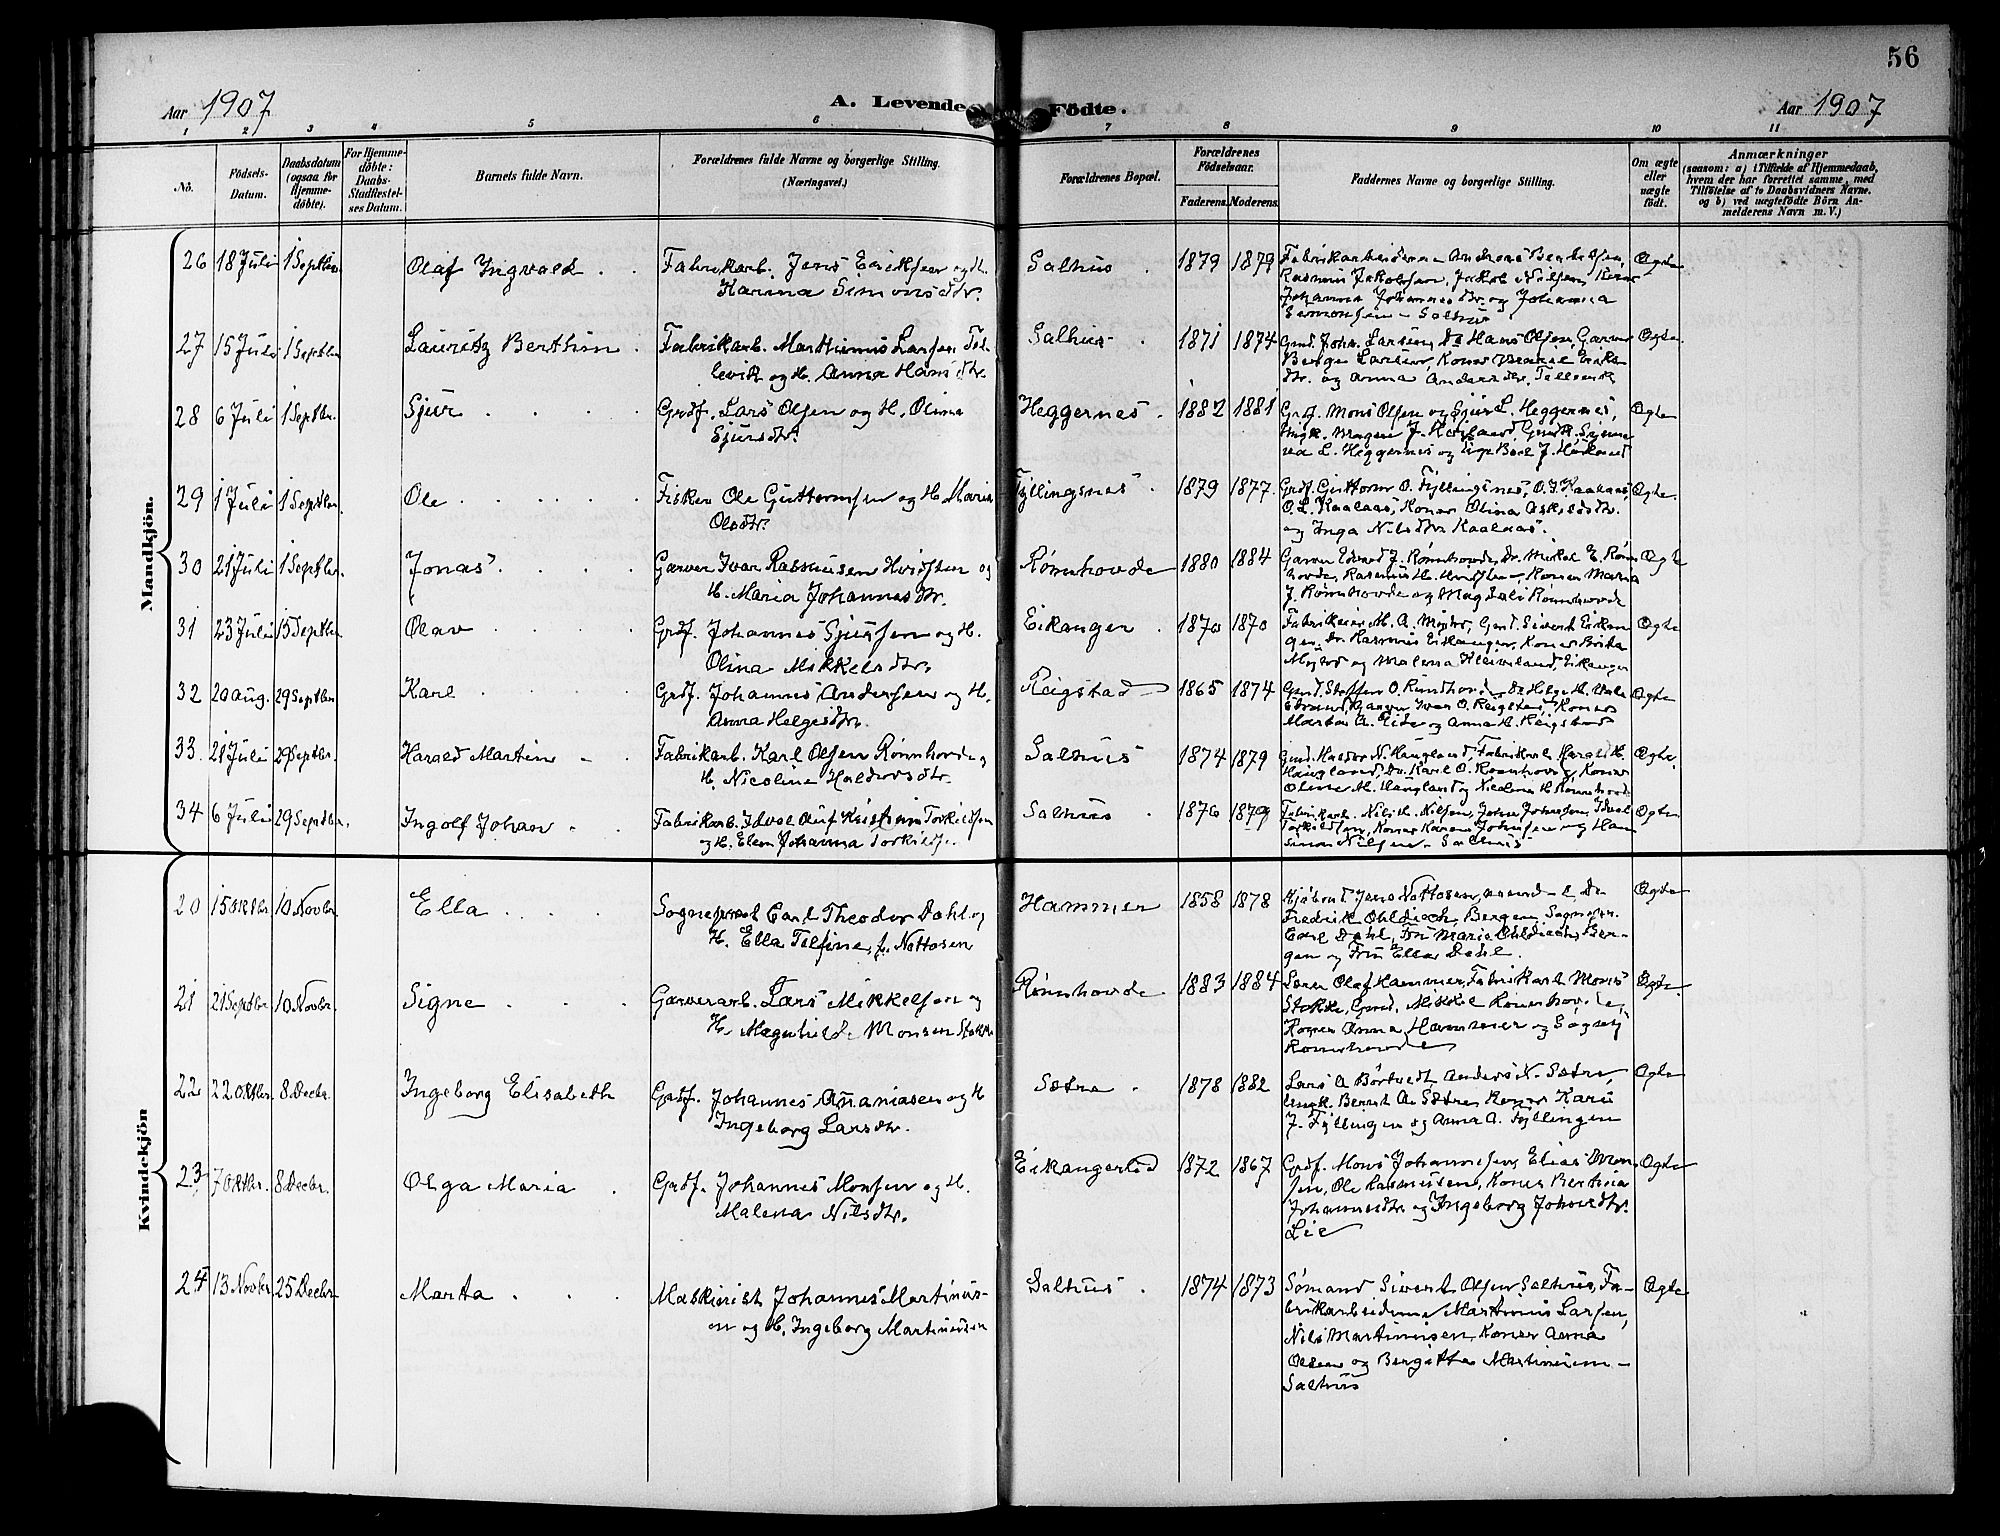 56
Aar 1907
A. Levende Födte.
Aar 1907
1 2 3 4 5 6 7 8 9 10 11
No.
Födsels-Datum.
Daabsdatum (ogsaa for Hjemme-döbte).
For Hjemme-döbte: Daabs-Stadfæstel-ses Datum.
Barnets fulde Navn.
Forældrenes fulde Navne og borgerlige Stilling. (Næringsvei.)
Forældrenes Bopæl.
Forældrenes Födselsaar.
Faderens. Moderens.
Faddernes Navne og borgerlige Stilling.
Om ægte eller uægte födt.
Anmærkninger
(saasom: a) i Tilfælde af Hjemmedaab,
hvem der har forrettet samme, med
Tilföielse af to Daabsvidners Navne.
og b) ved uægtefödte Börn An-
melderens Navn m. V.)
Mandkjön.
26 18 Juli 1 Septbr. Olaf Ingvald Fabrikarb. Jens Eriksen og H. Salhus 1879 1879 Fabrikarbeiderne Andreas Berthelsen, Ægte
Karina Simonsdtr. Rasmus Jakobsen, Jakob Nilsen,
Johanna Johannesdtr. og Johanna
Simonsen - Salhus
27 15 Juli 1 Septbr Lauritz Berthin Fabrikarb. Martinus Larsen Tel- Salhus 1871 1874 Gmd. Johs. Larsen, Do Hans Olsen, Garver Ægte
levik og H. Anna Hansdtr. Berge Larsen, Koner Marie Eriks-
dtr. og Anna Andersdtr. Tellevik
28 6 Juli 1 Septbr. Sjur Grdf. Lars Olsen og H. Olina Heggernes 1882 1881 Grdf. Mons Olsen og Sjur L. Heggernes, Ægte
Sjursdtr. Ungk. Mogens J.
L. Heggernes og
29 1 Juli 1 Septbr. Ole Fisker Ole Guttormsen og H. Maria Fyllingsnes 1879 1877 Grdf. Guttorm O. Fyllingsnes, O. J. Kaalaas, Ægte
Olsdtr. O. L. Kaalaas, Koner Olina Askildsdtr.
og Inga Nilsdtr. Kaalaas.
30 21 Juli 1 Septbr. Jonas Garver Ivar Rasmusen Hvidsten og Rømhovde 1880 1884 Garver Edvard J. Rømhovde, Do. Mikal E. Røm- Ægte
H. Maria Johannesdtr. hovde, Rasmus H. Hvidsten - Koner Maria
J. Rømhovde og Magdali Rømhovde
31 23 Juli 15 Septbr. Olav Grdf. Johannes Sjursen og H. Eikanger 1870 1870 Fabrikeier M. A. Mjøs, Gmd. Sivert Eikan- Ægte
Olina Mikkelsdtr. ger, Do. Rasmus Eikanger, Koner Brita
og Malena Kleiveland, Eikanger
32 20 Aug. 29 Septbr. Karl Grdf. Johannes Andersen og H. Reigstad 1865 1874 Gmd. Steffen O. Do Helge H. Ægte
Anna Helgesdtr. Garver Ivar O. Reigstad, Koner
Marta A. Eide og Anna A. Reigstad
33. 21 Juli 29 Septbr. Harald Martin Fabrikarb. Karl Olsen Rømhovde og Salhus 1874 1879 Gmd. Haldor N. Haugland, Fabrikarb. Harald H. Ægte
H. Nicoline Haldorsdtr. Haugland, Do. Karl O. Rømhovde, Koner
Oline M. Haugland og Nicoline H. Rømhovde
34 6 Juli 29 Septbr. Ingolf Johan Fabrikarb. Idval Oluf Kristian Torkildsen Salhus 1876 1879 Fabrikarb. Nils H. Nilsen, Johan Johnsen, Idval Ægte
og H. Elen Johanna Torkilds. Torkildsen, Koner Karen Johnsen og
Nilsen - Salhus
Kvindekjön
20 15 Oktbr. 10 Novbr. Ella Sogneprest Carl Theodor Dahl og Hammer 1858 1878 Kjøbmd Jens Nottosen, Ægte
H. Ella Telfine, f. Nottosen Fredrik Ohldieck Bergen, Sognepr.
Carl Dahl, Fru Marie Ohldieck, Ber-
gen og Fru Ella Dahl.
21 21 Septbr 10 Novbr. Signe Garverarb. Lars Mikkelsen og Rømhovde 1883 1884 Lærer Olaf Hammer, Fabrikarb. Mons Ægte
H. Magnhilde Monsen Stokke Stokke, Gmd. Mikkel Rømhovde,
Koner Anna Hammer og
Rømhovde
22 22 Oktbr. 8 Decbr. Ingeborg Elisabeth Grdf. Johannes Ananiasen og H. Sætre 1878 1882 Lars A Børtvedt Anders N. Sætre, Ægte
Ingeborg Larsdtr. Ungk. Bernt A. Sætre, Koner Kari
J. Fyllingen og Anna A. Fyllingen
23 7 Oktbr. 8 Decbr. Olga Maria Grdf. Johannes Monsen og H. Eikangerlid 1872 1867 Grdf. Mons Johannesen, Elias Mon- Ægte
Malena Nilsdtr. sen, Ole Rasmussen, Koner Berthia
Johannesdtr og Ingeborg
Lie
24 13 Novbr 25 Decbr Marta Maskinist Johannes Martinus- Salhus 1874 1873 Sømand Sivert Olsen Salhus, Fa- Ægte
en og H. Ingeborg Martinusen brikarbeiderne Martinus Larsen,
Nils Martinusen, Koner Anna
Olsen og Bergitte Martinusen -
Salhus